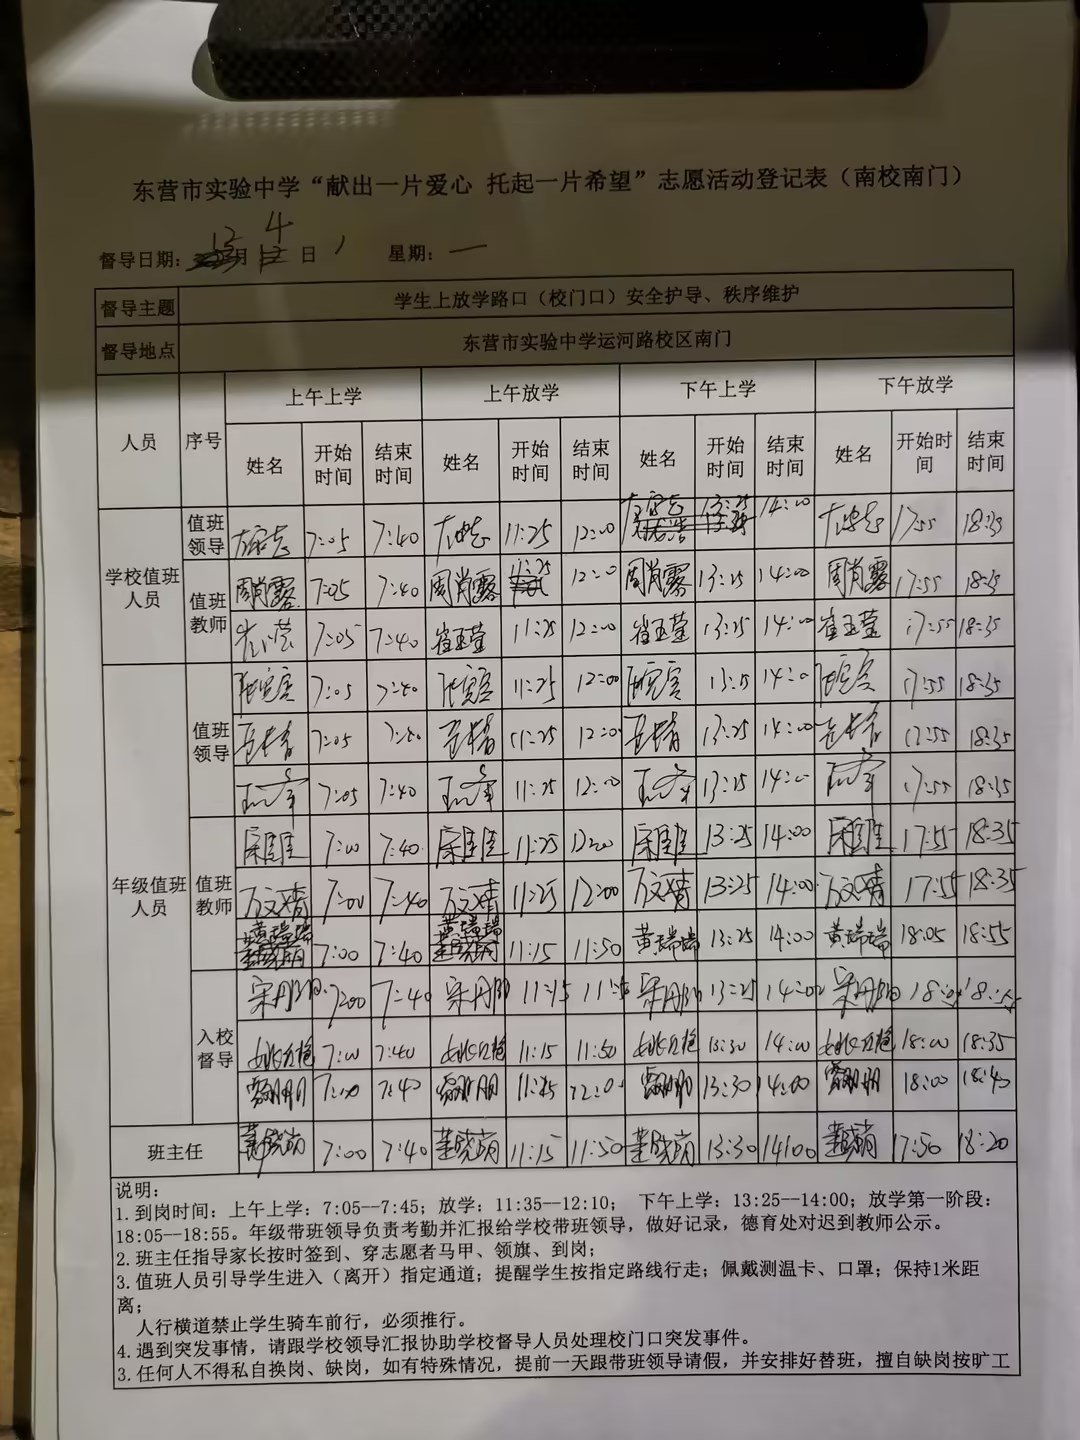 东营市实验中学“献出一片爱心 托起一片希望”志愿活动登记表（南校南门）
督导日期： 月 日 星期：一
督导主题 学生上放学路口（校门口）安全护导、秩序维护
督导地点 东营市实验中学运河路校区南门
人员 序号 上午上学 上午放学 下午上学 下午放学
姓名 开始时间 结束时间 姓名 开始时间 结束时间 姓名 开始时间 结束时间 姓名 开始时间 结束时间
学校值班人员 值班领导 7:05 7:40 11:25 12:00 14:00 17:55 18:35
值班教师 周肖露 7:05 7:40 周肖露 11:25 12:00 周肖露 13:25 14:00 周肖露 17:55 18:35
7:05 7:40 崔玉莹 11:25 12:00 崔玉莹 13:25 14:00 崔玉莹 17:55 18:35
年级值班人员 值班领导 7:05 7:40 11:25 12:00 13:25 14:00 17:55 18:35
7:05 7:40 11:25 12:00 13:25 14:00 17:55 18:35
7:05 7:40 11:25 12:00 13:25 14:00 17:55 18:35
值班教师 7:00 7:40 11:25 12:00 13:25 14:00 17:55 18:35
万文靖 7:00 7:40 万文靖 11:25 12:00 万文靖 13:25 14:00 万文靖 17:55 18:35
黄瑞瑞 7:00 7:40 黄瑞瑞 11:15 11:50 黄瑞瑞 13:25 14:00 黄瑞瑞 18:05 18:55
入校督导 7:00 7:40 11:15 11:50 13:25 14:00
7:00 7:40 11:15 11:50 13:30 14:00 18:00 18:35
7:00 7:40 13:30 14:00 18:00 18:40
班主任 董晓萌 7:00 7:40 董晓萌 11:15 11:50 董晓萌 13:30 14:00 董晓萌 17:50 18:20
说明：
1.到岗时间：上午上学：7:05--7:45；放学：11:35--12:10； 下午上学：13:25--14:00；放学第一阶段：
18:05--18:55。年级带班领导负责考勤并汇报给学校带班领导，做好记录，德育处对迟到教师公示。
2.班主任指导家长按时签到、穿志愿者马甲、领旗、到岗；
3.值班人员引导学生进入（离开）指定通道；提醒学生按指定路线行走；佩戴测温卡、口罩；保持1米距
离；
人行横道禁止学生骑车前行，必须推行。
4.遇到突发事情，请跟学校领导汇报协助学校督导人员处理校门口突发事件。
3.任何人不得私自换岗、缺岗，如有特殊情况，提前一天跟带班领导请假，并安排好替班，擅自缺岗按旷工